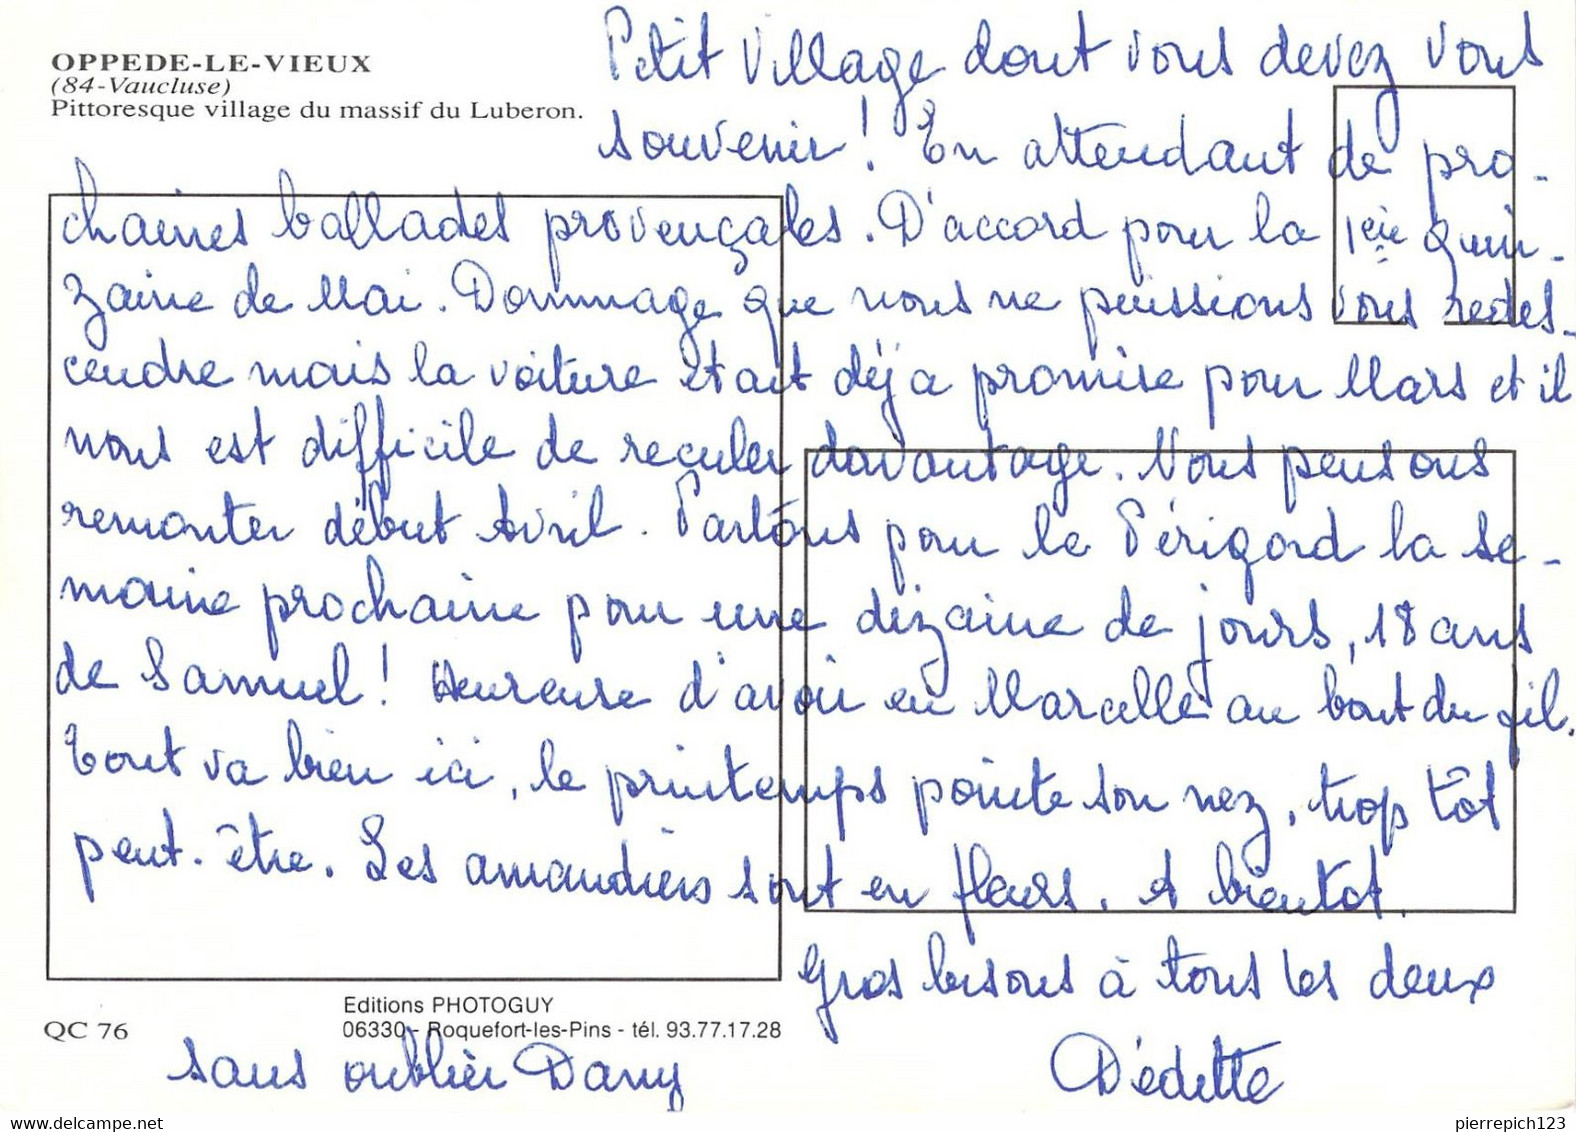 OPPEDE-LE-VIEUX
(84-Vaucluse)
Pittoresque village du massif du Luberon.
Petit village dont vous devez vous
souvenir ! En attendant de pro-
chaines ballades provençales. D'accord pour la 1ère quin-
zaine de Mai. Dommage que nous ne puissions vous redes-
cendre mais la voiture était déjà promise pour Mars et il
nous est difficile de reculer davantage. Nous pensons
remonter début Avril. Partons pour le Périgord la se-
maine prochaine pour une dizaine de jours, 18 ans
de Samuel ! Heureuse d'avoir eu Marcelle au bout du fil.
Tout va bien ici, le printemps pointe son nez, trop tôt
peut-être. Les amandiers sont en fleurs. A bientot.
Gros bisous à tous les deux
sans oublier Dany
Dédette
Editions PHOTOGUY
QC 76
06330 - Roquefort-les-Pins - tél. 93.77.17.28
pierrepich123